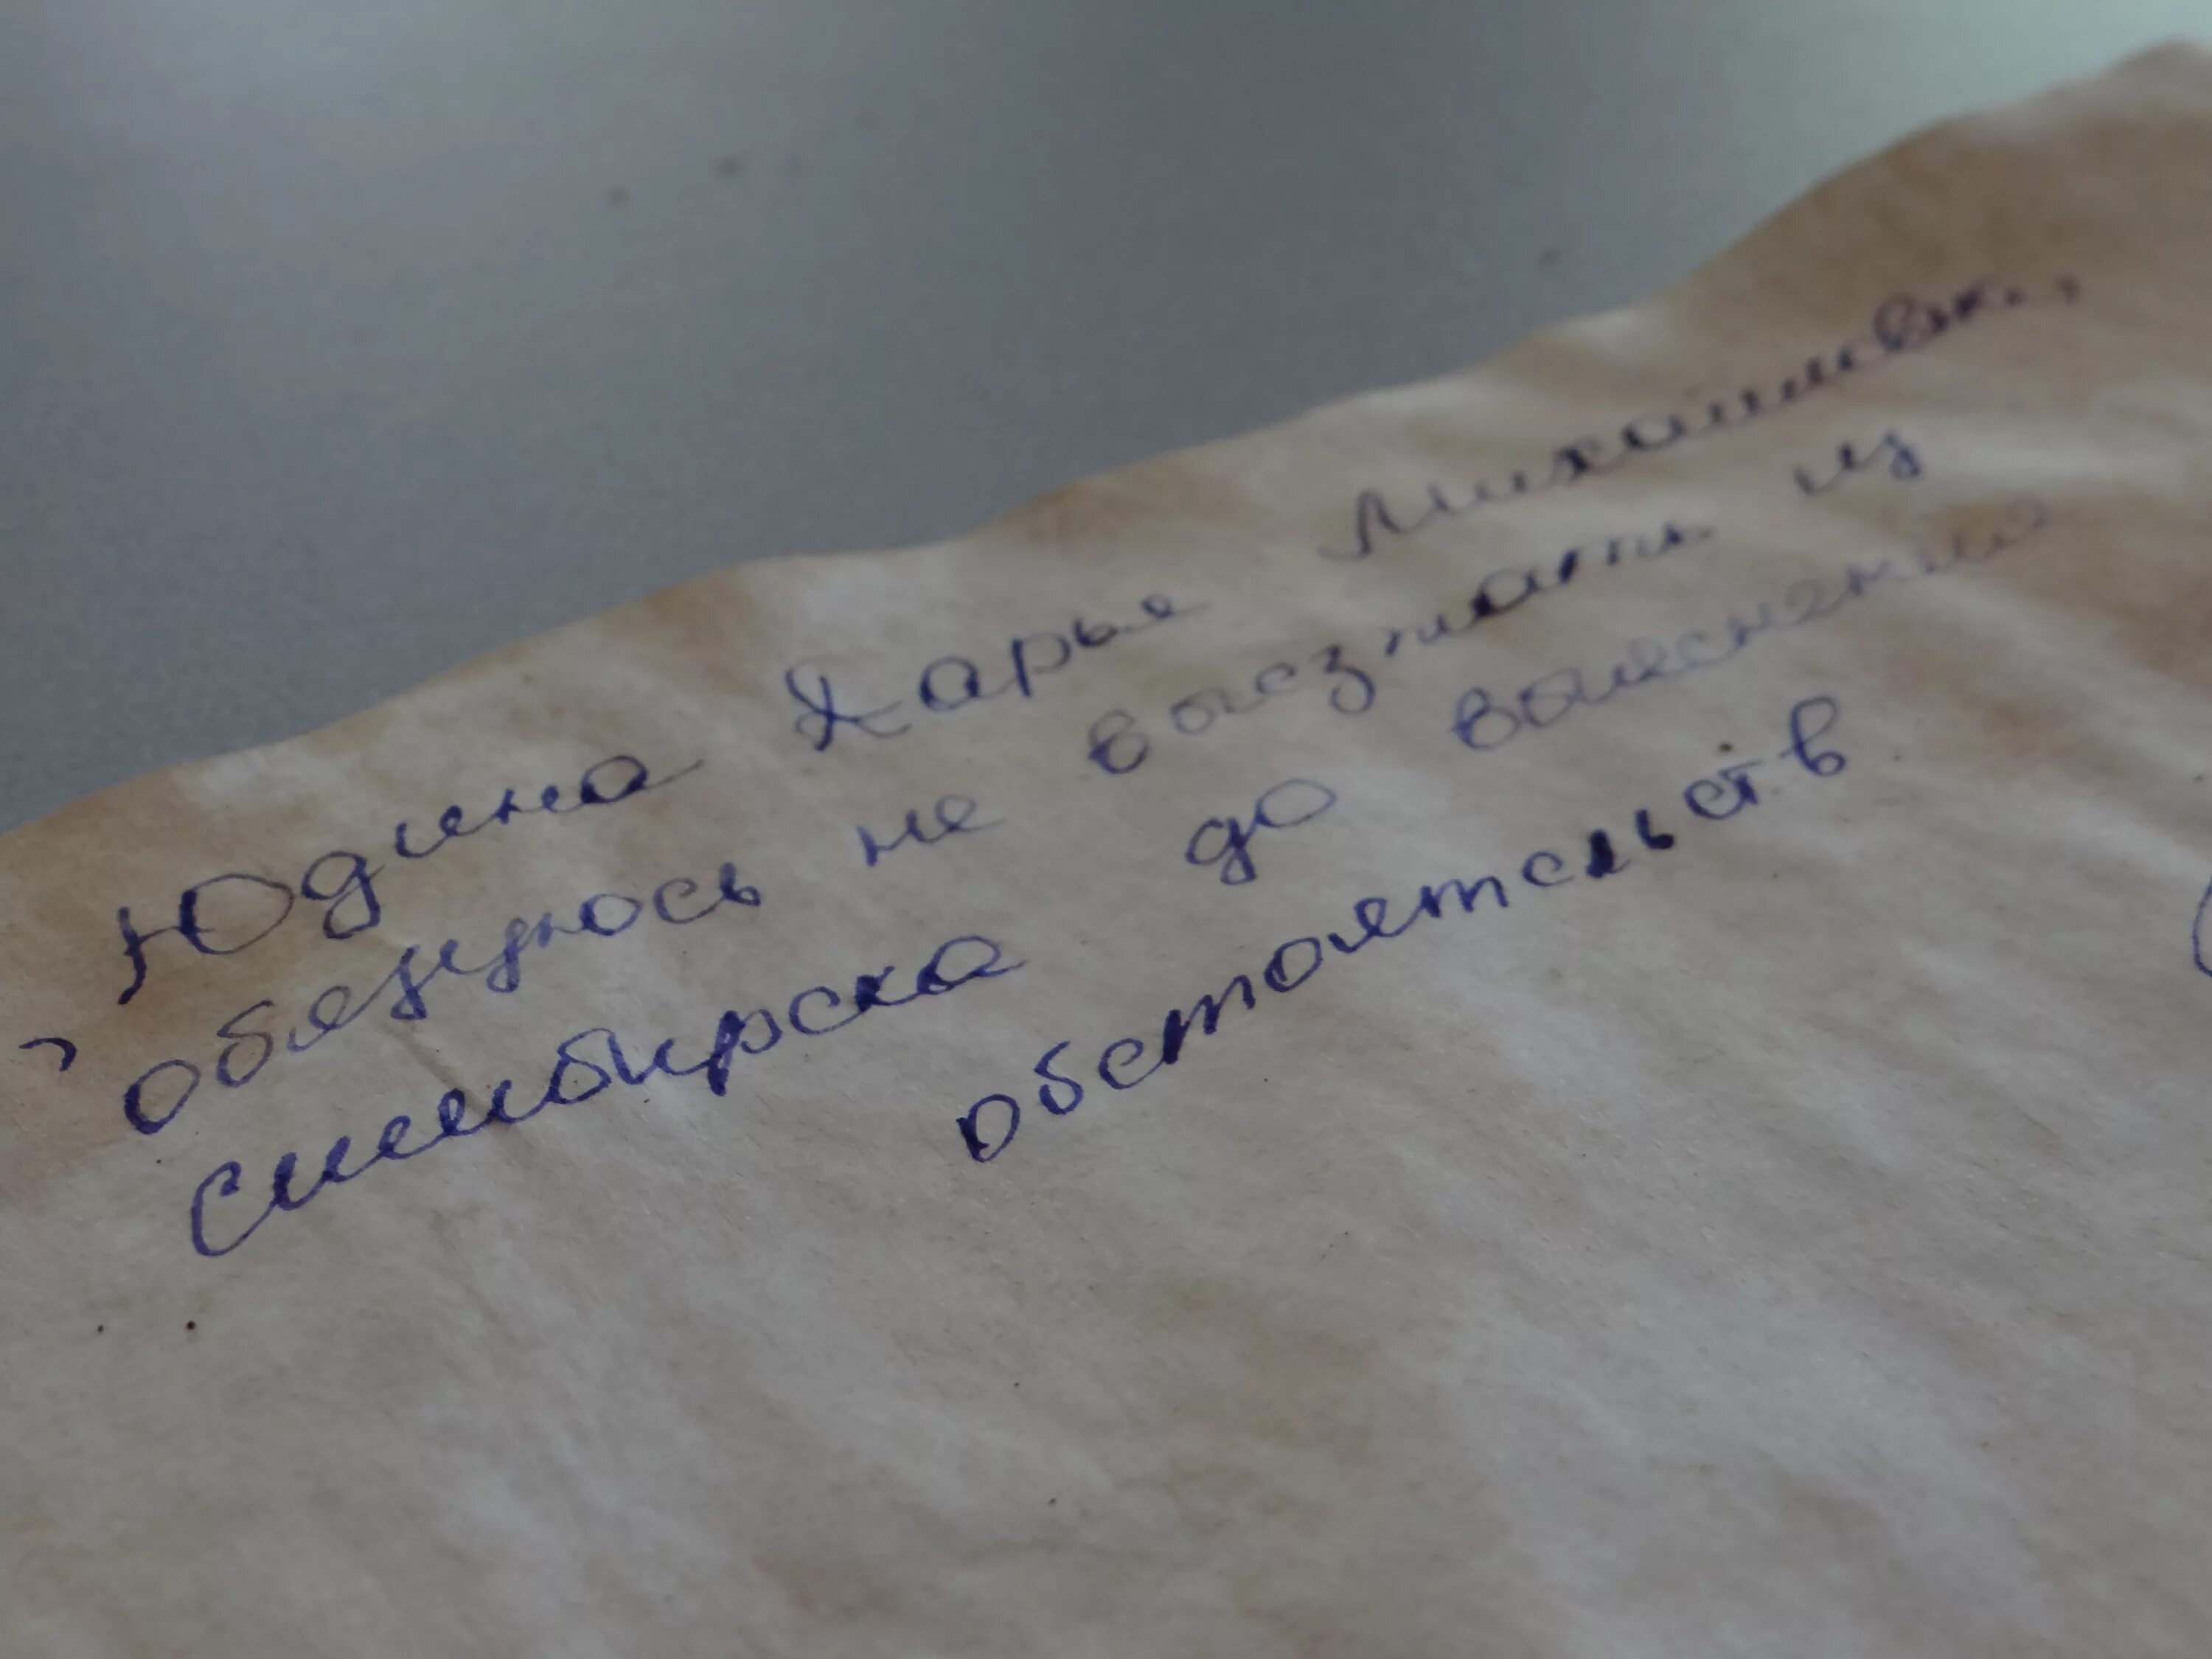 Юдина Дарья Михайловна,
обязуюсь не выезжать из
симбирска до выяснения
обстоятельств